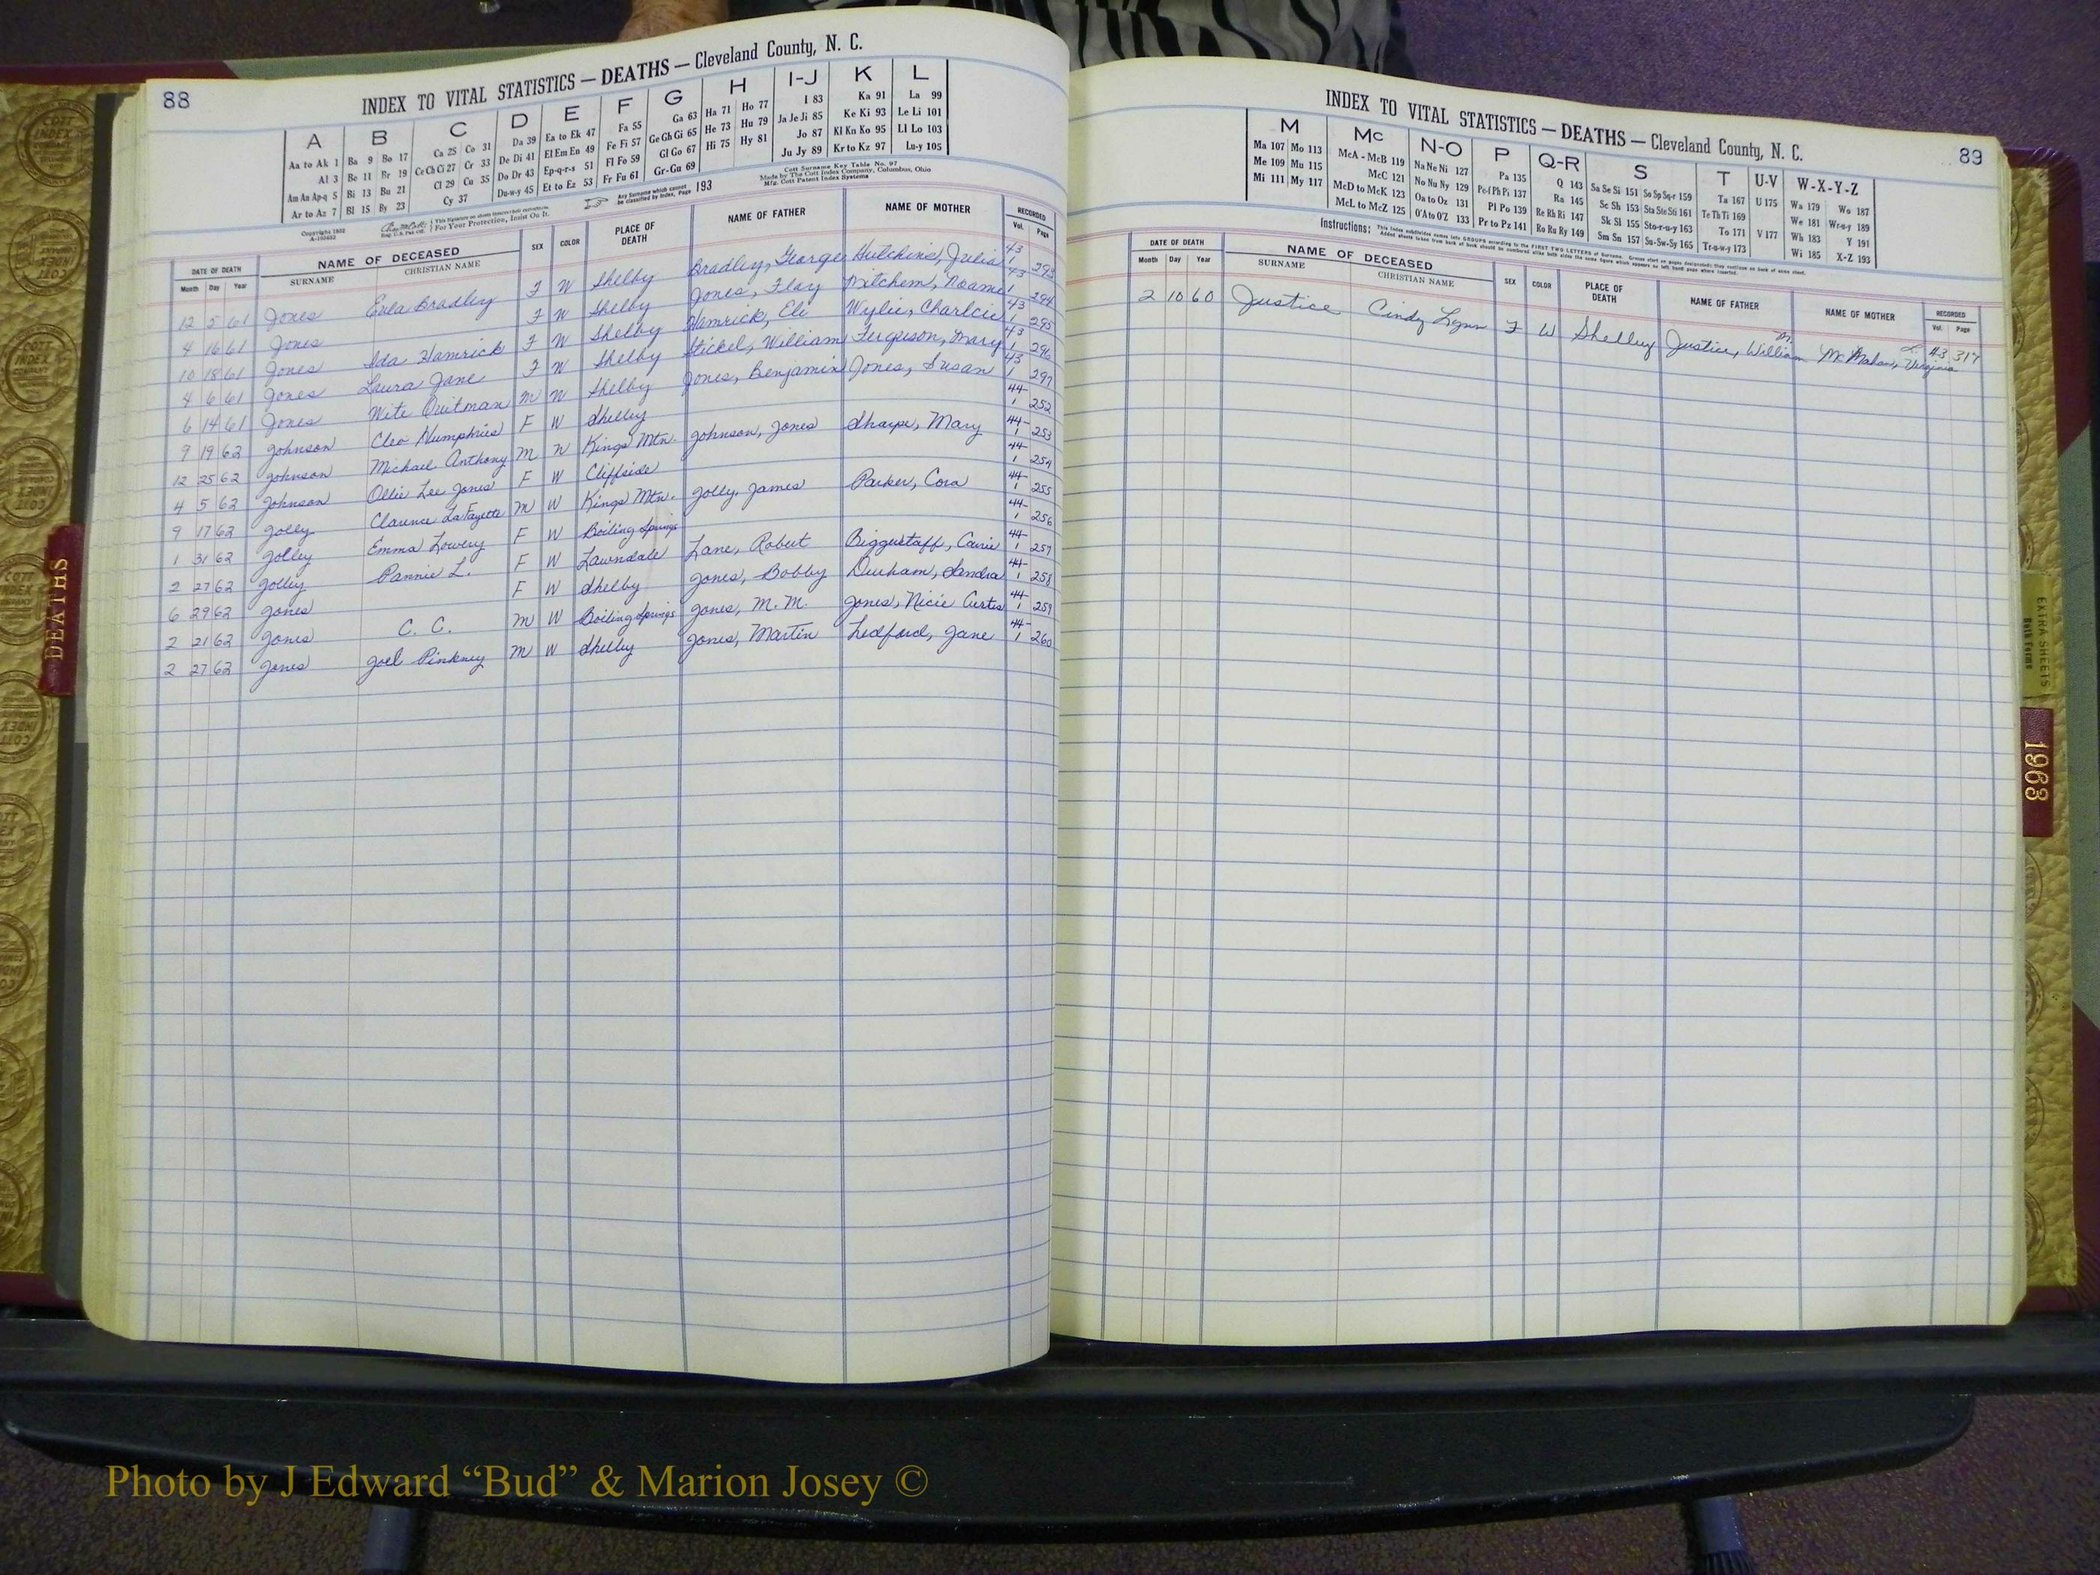 88
INDEX TO VITAL STATISTICS — DEATHS — Cleveland County, N. C.
A B C D E F G H I-J K L
Aa to Ak 1 Ba 9 Bo 17 Ca 25 Co 31 Da 39 Ea to Ek 47 Fa 55 Ga 63 Ha 71 Ho 77 I 83 Ka 91 La 99
Al 3 Be 11 Br 19 Ce Ch Ci 27 Cr 33 De Di 41 El Em En 49 Fe Fi 57 Ge Gh Gi 65 He 73 Hu 79 Ja Je Ji 85 Ke Ki 93 Le Li 101
Am An Ap-q 5 Bi 13 Bu 21 Cl 29 Cu 35 Do Dr 43 Ep-q-r-s 51 Fl Fo 59 Gl Go 67 Hi 75 Hy 81 Jo 87 Kl Kn Ko 95 Ll Lo 103
Ar to Az 7 Bl 15 By 23 Cy 37 Du-w-y 45 Et to Ez 53 Fr Fu 61 Gr-Gu 69 Ju Jy 89 Kr to Kz 97 Lu-y 105
Copyright 1932
This Signature on sheets insures best materials.
For Your Protection, Insist On It.
Any Surname which cannot be classified by Index, Page 193
Cott Surname Key Table No. 97
Made by The Cott Index Company, Columbus, Ohio
Mfg. Cott Patent Index Systems
DATE OF DEATH NAME OF DECEASED SEX COLOR PLACE OF DEATH NAME OF FATHER NAME OF MOTHER RECORDED
Month Day Year SURNAME CHRISTIAN NAME Vol. Page
12 5 61 Jones Eula Bradley F W Shelby Bradley, George Hutchins, Julia 43 1 293
4 16 61 Jones F W Shelby Jones, Flay Mitchem, Noama 43 1 294
10 18 61 Jones Ida Hamrick F W Shelby Hamrick, Eli Wylie, Charlcie 43 1 295
4 6 61 Jones Laura Jane F W Shelby Stickel, William Ferguson, Mary 43 1 296
6 14 61 Jones Wite Quitman M W Shelby Jones, Benjamin Jones, Susan 43 1 297
9 19 62 Johnson Cleo Humphries F W Shelby 44- 1 252
12 25 62 Johnson Michael Anthony M W Kings Mtn. Johnson, Jones Sharpe, Mary 44- 1 253
4 5 62 Johnson Ollie Lee Jones F W Cliffside 44- 1 254
9 17 62 Jolly Clarence LaFayette M W Kings Mtn. Jolly, James Parker, Cora 44- 1 255
1 31 62 Jolley Emma Lowery F W Boiling Springs 44- 1 256
2 27 62 Jolley Pannie L. F W Lawndale Lane, Robert Biggerstaff, Carrie 44- 1 257
6 29 62 Jones F W Shelby Jones, Bobby Durham, Sandra 44- 1 258
2 21 62 Jones C. C. M W Boiling Springs Jones, M. M. Jones, Nicie Curtis 44- 1 259
2 27 62 Jones Joel Pinkney M W Shelby Jones, Martin Ledford, Jane 44- 1 260
89
INDEX TO VITAL STATISTICS — DEATHS — Cleveland County, N. C.
M Mc N-O P Q-R S T U-V W-X-Y-Z
Ma 107 Mo 113 McA - McB 119 Na Ne Ni 127 Pa 135 Q 143 Sa Se Si 151 So Sp Sq-r 159 Ta 167 U 175 Wa 179 Wo 187
Me 109 Mu 115 McC 121 No Nu Ny 129 Pe-f Ph Pi 137 Ra 145 Sc Sh 153 Sta Ste Sti 161 Te Th Ti 169 We 181 Wr-u-y 189
Mi 111 My 117 McD to McK 123 Oa to Oz 131 Pl Po 139 Re Rh Ri 147 Sk Sl 155 Sto-r-u-y 163 To 171 V 177 Wh 183 Y 191
McL to McZ 125 O'A to O'Z 133 Pr to Pz 141 Ro Ru Ry 149 Sm Sn 157 Su-Sw-Sy 165 Tr-u-w-y 173 Wi 185 X-Z 193
Instructions: This Index subdivides names into GROUPS according to the FIRST TWO LETTERS of Surname. Groups start on pages designated; they continue on back of same sheet.
Added sheets taken from back of book should be numbered alike both sides the same figure which appears on left hand page where inserted.
DATE OF DEATH NAME OF DECEASED SEX COLOR PLACE OF DEATH NAME OF FATHER NAME OF MOTHER RECORDED
Month Day Year SURNAME CHRISTIAN NAME Vol. Page
2 10 60 Justice Cindy Lynn F W Shelby Justice, William M. McMahan, Virginia L. 43 317
DEATHS
EXTRA SHEETS
Both Forms
1963
COTT INDEX COMPANY
Photo by J Edward “Bud” & Marion Josey ©